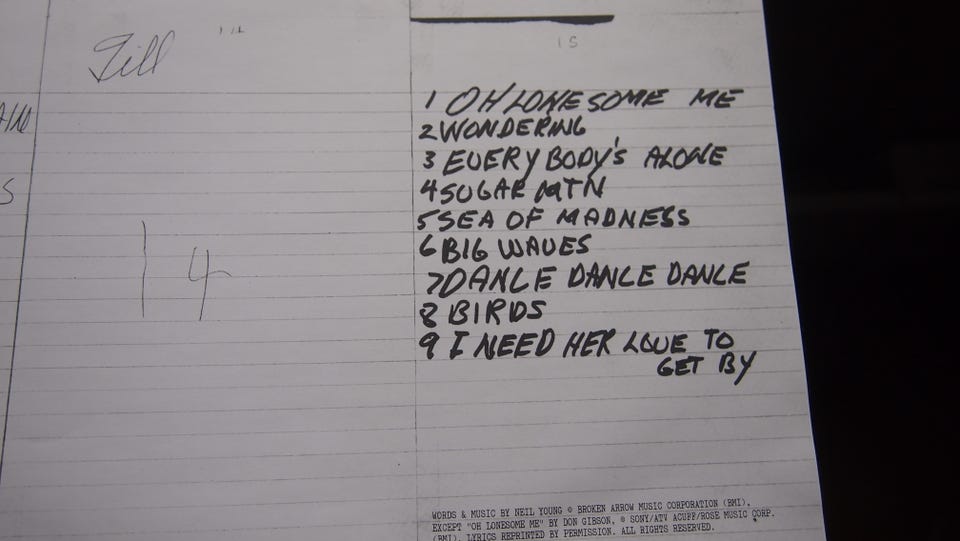 Till
15
1 OH LONESOME ME
2 WONDERING
3 EVERYBODY'S ALONE
4 SUGAR MTN
5 SEA OF MADNESS
6 BIG WAVES
7 DANCE DANCE DANCE
8 BIRDS
9 I NEED HER LOVE TO
GET BY
14
WORDS & MUSIC BY NEIL YOUNG © BROKEN ARROW MUSIC CORPORATION (BMI),
EXCEPT "OH LONESOME ME" BY DON GIBSON, © SONY/ATV ACUFF/ROSE MUSIC CORP.
(BMI). LYRICS REPRINTED BY PERMISSION. ALL RIGHTS RESERVED.